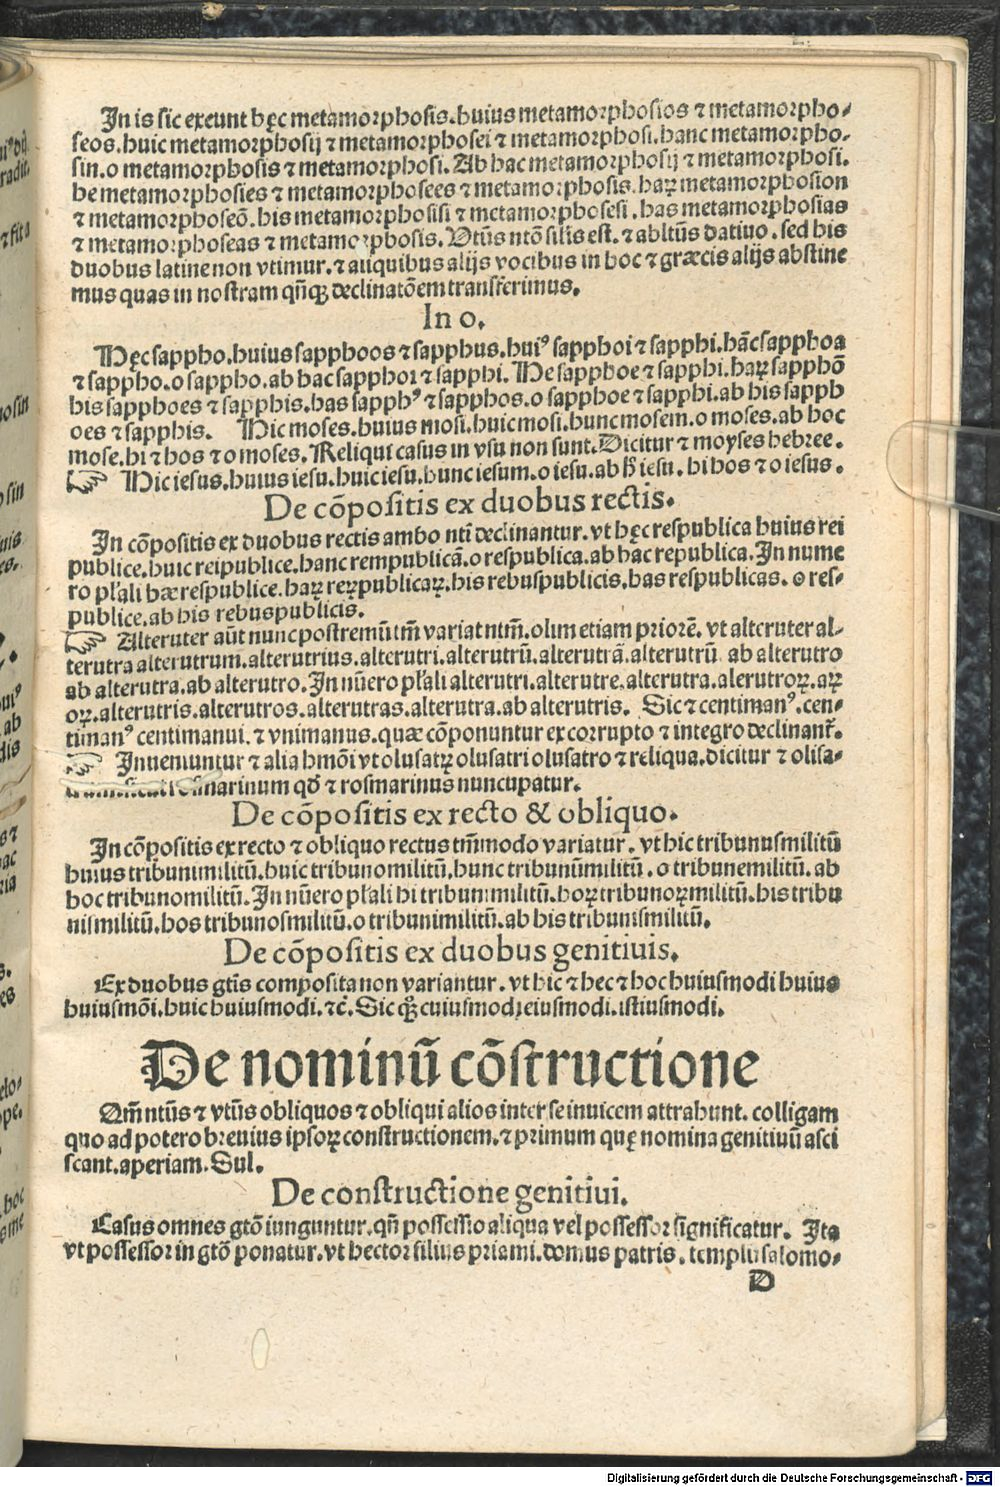 In is sic exeunt hęc metamorphosis.huius metamorphosios ⁊ metamorpho⸗
seos.huic metamorphosij ⁊ metamorphosei ⁊ metamorphosi.hanc metamorpho⸗
sin.o metamorphosis ⁊ metamorphosi. Ab hac metamorphosij ⁊ metamorphosi.
he metamorphosies ⁊ metamorphosees ⁊ metamorphosis.haꝝ metamorphosion
⁊ metamorphoseō.his metamorphosisi ⁊ metamorphosesi.has metamorphosias
⁊ metamorphoseas ⁊ metamorphosis. Vtūs ntō silis est.⁊ abltūs datiuo.sed his
duobus latine non vtimur.⁊ aliquibus alijs vocibus in hoc ⁊ græcis alijs abstine
mus quas in nostram qn̄qꝫ declinatōem transferimus.
In o.
Hęc sappho.huius sapphoos ⁊ sapphus.huiꝰ sapphoi ⁊ sapphi.hāc sapphoa
⁊ sappho.o sappho.ab hac sapphoi ⁊ sapphi. He sapphoe ⁊ sapphi.haꝝ sapphō
his sapphoes ⁊ sapphis.has sapphꝰ ⁊ sapphos.o sapphoe ⁊ sapphi.ab his sapph
oes ⁊ sapphis. Hic moses.huius mosi.huic mosi.hunc mosem.o moses.ab hoc
mose.hi ⁊ hos ⁊ o moses. Reliqui casus in vsu non sunt. Dicitur ⁊ moyses hebree.
☞ Hic iesus.huius iesu.huic iesu.hunc iesum.o iesu.ab h̄ iesu.hi hos ⁊ o iesus.
De cōpositis ex duobus rectis.
In cōpositis ex duobus rectis ambo nti declinantur.vt hęc respublica huius rei
publice.huic reipublice.hanc rempublicā.o respublica.ab hac republica. In nume
ro pl'ali hæ respublice.haꝝ reꝝpublicaꝝ.his rebuspublicis.has respublicas.o res⸗
publice.ab his rebuspublicis.
☞ Alteruter aūt nunc postremū tm̄ variat ntm̄.olim etiam priorē.vt alteruter al⸗
terutra alterutrum.alterutrius.alterutri.alterutrū.alterutrā.alterutrū ab alterutro
ab alterutra.ab alterutro. In nūero pl'ali alterutri.alterutre.alterutra.alerutroꝝ.aꝝ
oꝝ.alterutris.alterutros.alterutras.alterutra.ab alterutris. Sic ⁊ centimanꝰ.cen⸗
timanꝰ centimanui.⁊ vnimanus.quæ cōponuntur ex corrupto ⁊ integro declinant᷑.
☞ Inueniuntur ⁊ alia hmōi vt olusatꝝ olusatri olusatro ⁊ reliqua.dicitur ⁊ olisa⸗
rosmarinum qd̄ ⁊ rosmarinus nuncupatur.
De cōpositis ex recto & obliquo.
In cōpositis ex recto ⁊ obliquo rectus tm̄modo variatur.vt hic tribunusmilitū
huius tribunimilitū.huic tribunomilitū.hunc tribunūmilitū.o tribunemilitū.ab
hoc tribunomilitū. In nūero pl'ali hi tribunimilitū.hoꝝ tribunoꝝmilitū.his tribu
nismilitū.hos tribunosmilitū.o tribunimilitū.ab his tribunismilitū.
De cōpositis ex duobus genitiuis.
Ex duobus gtis composita non variantur.vt hic ⁊ hec ⁊ hoc huiusmodi huius
huiusmōi.huic huiusmodi.⁊c̄. Sic qꝫ cuiusmodi eiusmodi.istiusmodi.
De nominū cōstructione
Qm̄ ntūs ⁊ vtūs obliquos ⁊ obliqui alios inter se inuicem attrahunt.colligam
quo ad potero breuius ipsoꝝ constructionem.⁊ primum quę nomina genitiuū asci
scant.aperiam. Sul.
De constructione genitiui.
Casus omnes gtō iunguntur.qn̄ possessio aliqua vel possessor significatur. Ita
vt possessor in gtō ponatur.vt hector filius priami.domus patris.templū salomo⸗
D
Digitalisierung gefördert durch die Deutsche Forschungsgemeinschaft - DFG